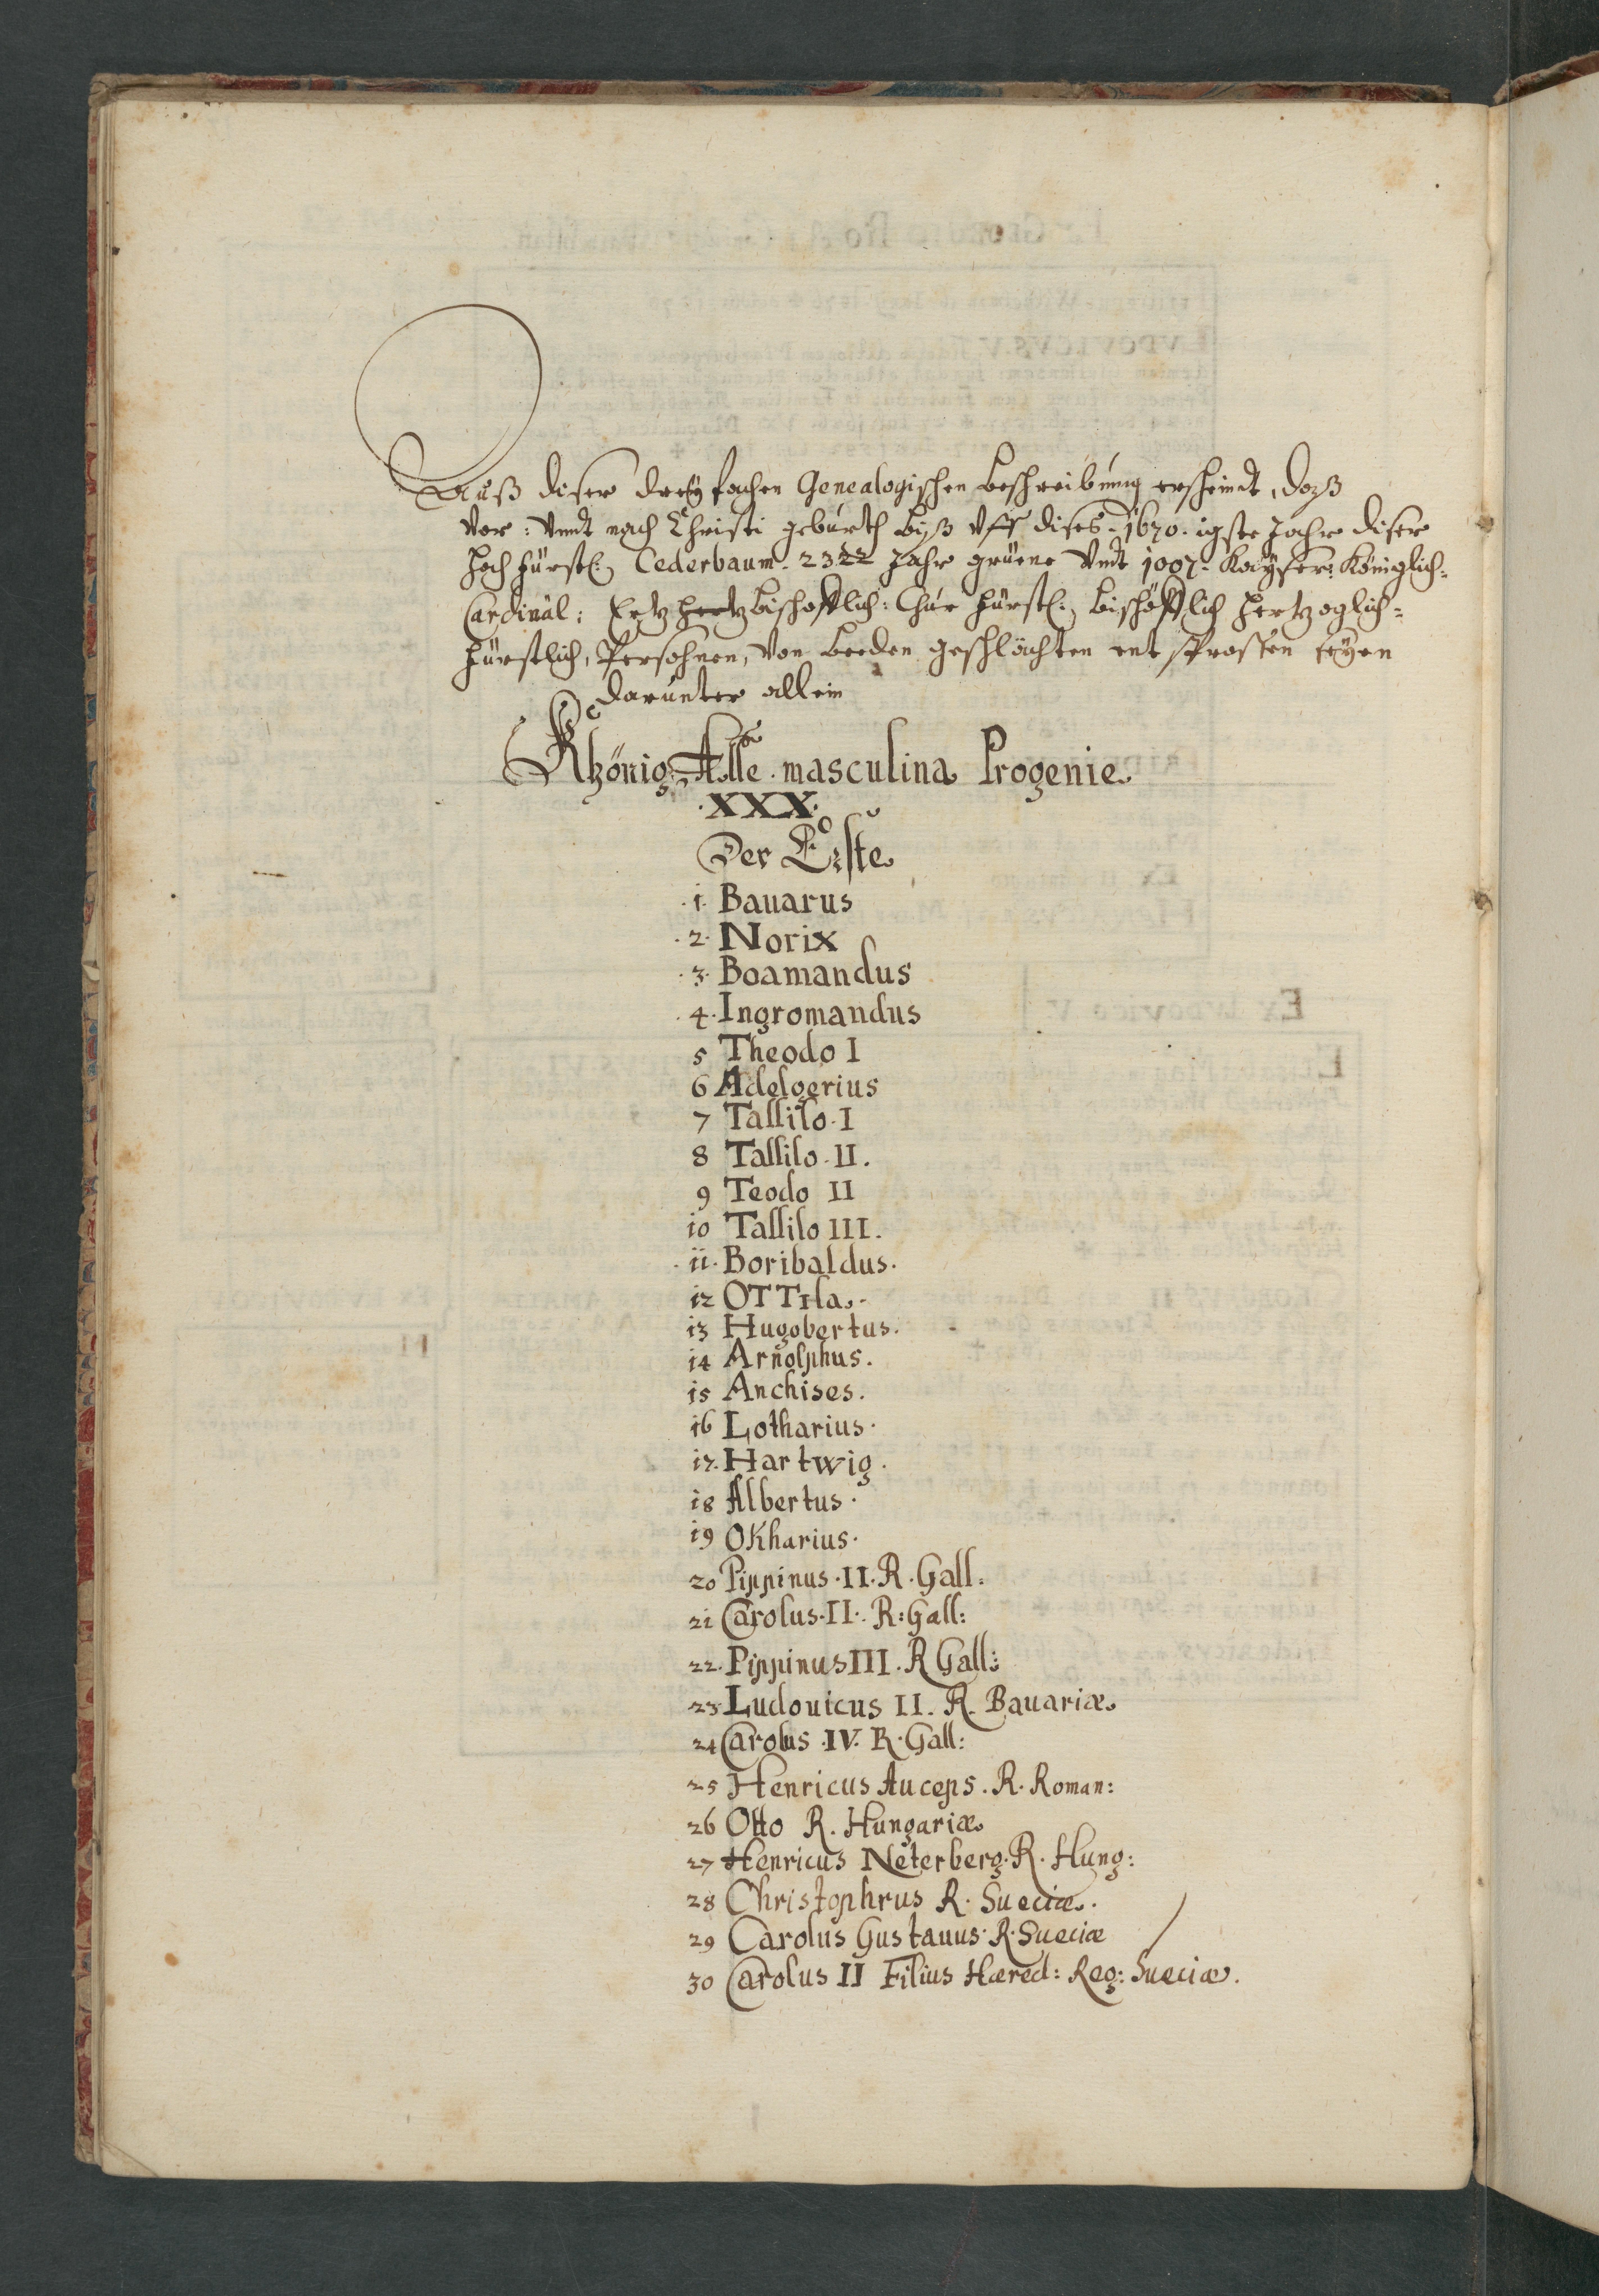 Auß diser dreyfachen Genealogischen beschreibung erscheindt, daß
vor: vnndt nach Christi geburth biß vff dises 1670.igste Jahr diser
Hochfürstl: Cederbaum. 23 Jahr gruene vndt 1007. Kayser: Königlich:
Cardinàl: Ertz bischofflich: Chur fürstl: bischöfflich hertzoglich:
fürstlich, Persohnen, von beeden geschlächten entsprossen seyen
darunter allein
Khönig Alle masculina Progenie
.XXX.
Der Erste
.1. Bauarus
.2. Norix
.3. Boamandus
.4. Ingromandus
5 Theodo I
6 Adelgerius
7 Tassilo.I
8 Tassilo.II.
9 Teodo II
10 Tassilo III.
.11. Boribaldus.
12 OTTIla.
13 Hugobertus.
14 Arnolphus.
15 Anchises.
16 Lotharius.
17. Hartwig.
18 Albertus.
19 Okharius.
20 Pippinus.II.R.Gall:
21 Carolus.II. R:Gall:
22. Pippinus III. R Gall:
23 Ludouicus II. R. Bauariæ
24 Carolus .IV. R.Gall:
25 Henricus Auceps. R. Roman:
26 Otto R. Hungariæ
27 Henricus Neterberg. R. Hung:
28 Christophrus R. Sueciæ.
29 Carolus Gustauus. R. Sueciæ
30 Carolus II Filius Hæred: Reg: Sueciæ.